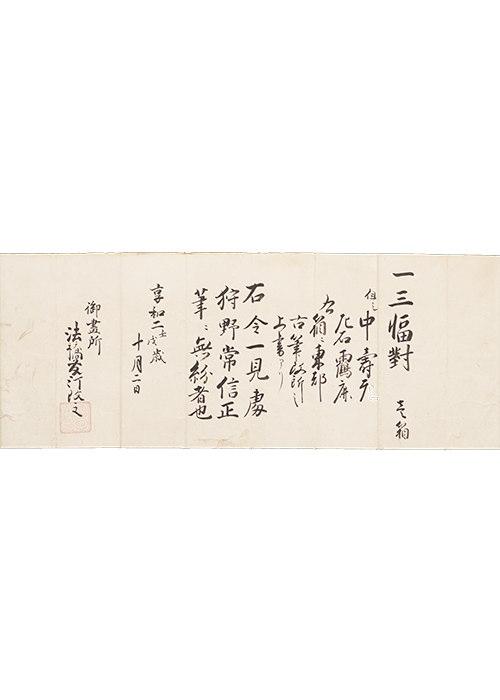 一三幅對 壱箱
但シ中壽老
左右鶴屏
右箱ニ東都
古筆改所之
上書アリ
右令一見處
狩野常信正
筆ニ無紛者也
享和二壬戌歳
十月二日
御畫所
法橋